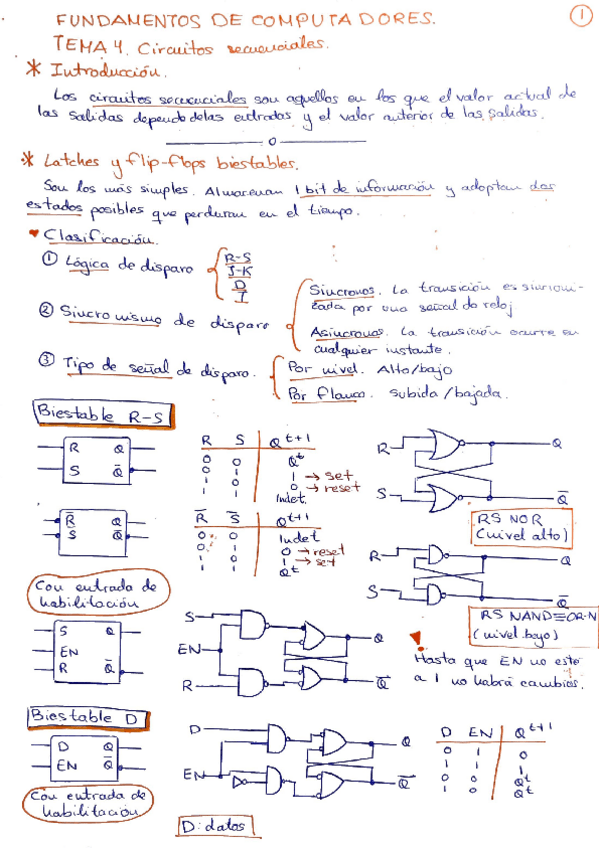 FUNDAMENTOS DE COMPUTADORES.
1
TEMA 4. Circuitos secuenciales.
* Introducción.
Los circuitos secuenciales son aquellos en los que el valor actual de
las salidas depende de las entradas y el valor anterior de las salidas.
* Latches y flip-flops biestables.
Son los más simples. Almacenan 1 bit de información y adoptan dos
estados posibles que perduran en el tiempo.
♥ Clasificación.
① Lógica de disparo
R-S
J-K
D
T
② Sincronismo de disparo
Síncronos. La transición es sincroni-
zada por una señal de reloj
Asíncronos. La transición ocurre en
cualquier instante.
③ Tipo de señal de disparo.
Por nivel. Alto/bajo
Por flanco. subida/bajada.
Biestable R-S
R Q
S Q̅
R S Q^t+1
0 0 Q^t
0 1 1 → set
1 0 0 → reset
1 1 Indet
R Q
S Q̅
R̅ Q
S̅ Q̅
R̅ S̅ Q^t+1
0 0 Indet
0 1 0 → reset
1 0 1 → set
1 1 Q^t
RS NOR
(nivel alto)
R Q
S Q̅
RS NAND≡OR-N
(nivel bajo)
Con entrada de
habilitación
S Q
EN
R Q̅
S Q
EN
R Q̅
! Hasta que EN no esté
a 1 no habrá cambios.
Biestable D
D Q
EN Q̅
Con entrada de
habilitación
D Q
EN Q̅
D: datos
D EN Q^t+1
0 1 0
1 1 1
0 0 Q^t
1 0 Q^t